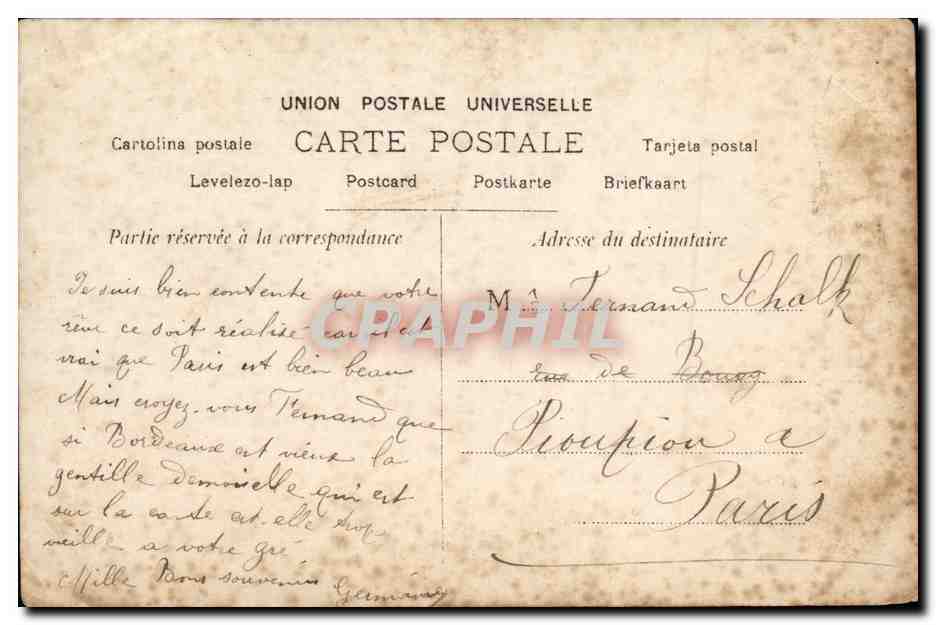 UNION POSTALE UNIVERSELLE
Cartolina postale CARTE POSTALE Tarjeta postal
Levelezo-lap Postcard Postkarte Briefkaart
Partie réservée à la correspondance
Je suis bien contente que votre
rêve ce soit réalisé car il est
vrai que Paris est bien beau
Mais croyez-vous Fernand que
si Bordeaux est vieux la
gentille demoiselle qui est
sur la carte est-elle trop
vieille a votre gré
Mille Bons souvenirs
Adresse du destinataire
Mr Fernand Schalk
rue de
Pioupiou a
Paris
CPAPHIL